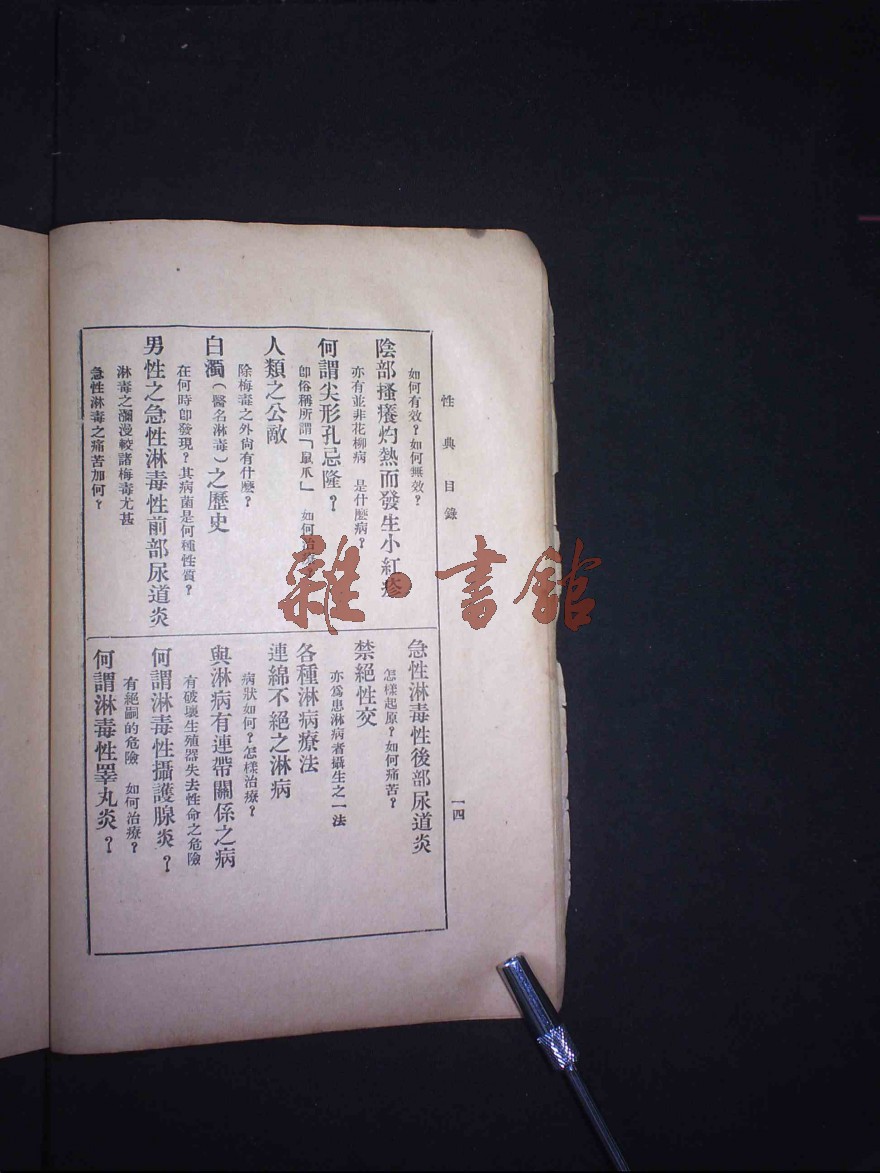 性典目錄
一四
如何有效？如何無效？
陰部搔癢灼熱而發生小紅疹
亦有並非花柳病　是什麼病？
何謂尖形孔忌隆？
卽俗稱所謂「鼠爪」　如何治療？
人類之公敵
除梅毒之外尙有什麼？
白濁（醫名淋毒）之歷史
在何時卽發現？其病菌是何種性質？
男性之急性淋毒性前部尿道炎
淋毒之瀰漫較諸梅毒尤甚
急性淋毒之痛苦如何？
急性淋毒性後部尿道炎
怎樣起原？如何痛苦？
禁絕性交
亦爲患淋病者攝生之一法
各種淋病療法
連綿不絕之淋病
病狀如何？怎樣治療？
與淋病有連帶關係之病
有破壞生殖器失去性命之危險
何謂淋毒性攝護腺炎？
有絕嗣的危險　如何治療？
何謂淋毒性睪丸炎？
雜·書館